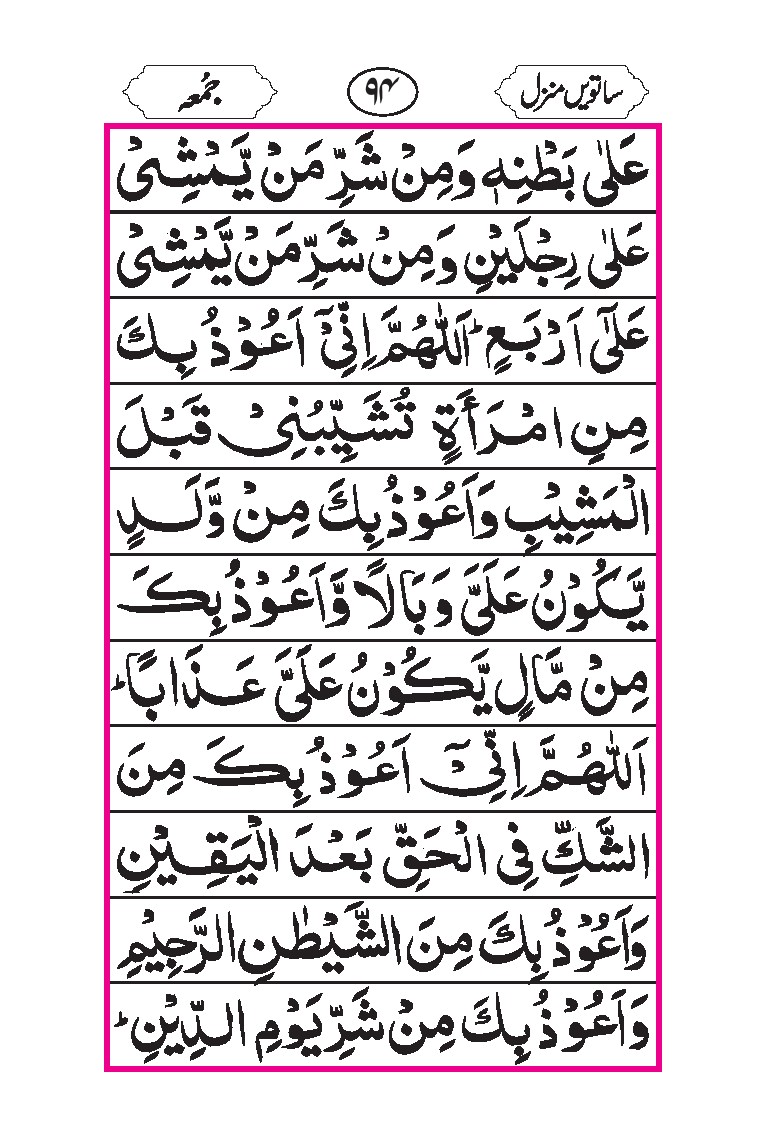 ساتویں منزل ۹۴ جُمعہ
عَلٰى بَطْنِهٖ وَمِنْ شَرِّ مَنْ يَّمْشِىْ
عَلٰى رِجْلَيْنِ وَمِنْ شَرِّ مَنْ يَّمْشِىْ
عَلٰٓى اَرْبَعٍ ؕ اَللّٰهُمَّ اِنِّىْٓ اَعُوْذُ بِكَ
مِنِ امْرَأَةٍ تُشَيِّبُنِىْ قَبْلَ
الْمَشِيْبِ وَاَعُوْذُ بِكَ مِنْ وَّلَدٍ
يَّكُوْنُ عَلَىَّ وَبَالًا وَّاَعُوْذُ بِكَ
مِنْ مَّالٍ يَّكُوْنُ عَلَىَّ عَذَابًا ؕ
اَللّٰهُمَّ اِنِّىْٓ اَعُوْذُ بِكَ مِنَ
الشَّكِّ فِى الْحَقِّ بَعْدَ الْيَقِيْنِ
وَاَعُوْذُ بِكَ مِنَ الشَّيْطٰنِ الرَّجِيْمِ
وَاَعُوْذُ بِكَ مِنْ شَرِّ يَوْمِ الدِّيْنِ ؕ